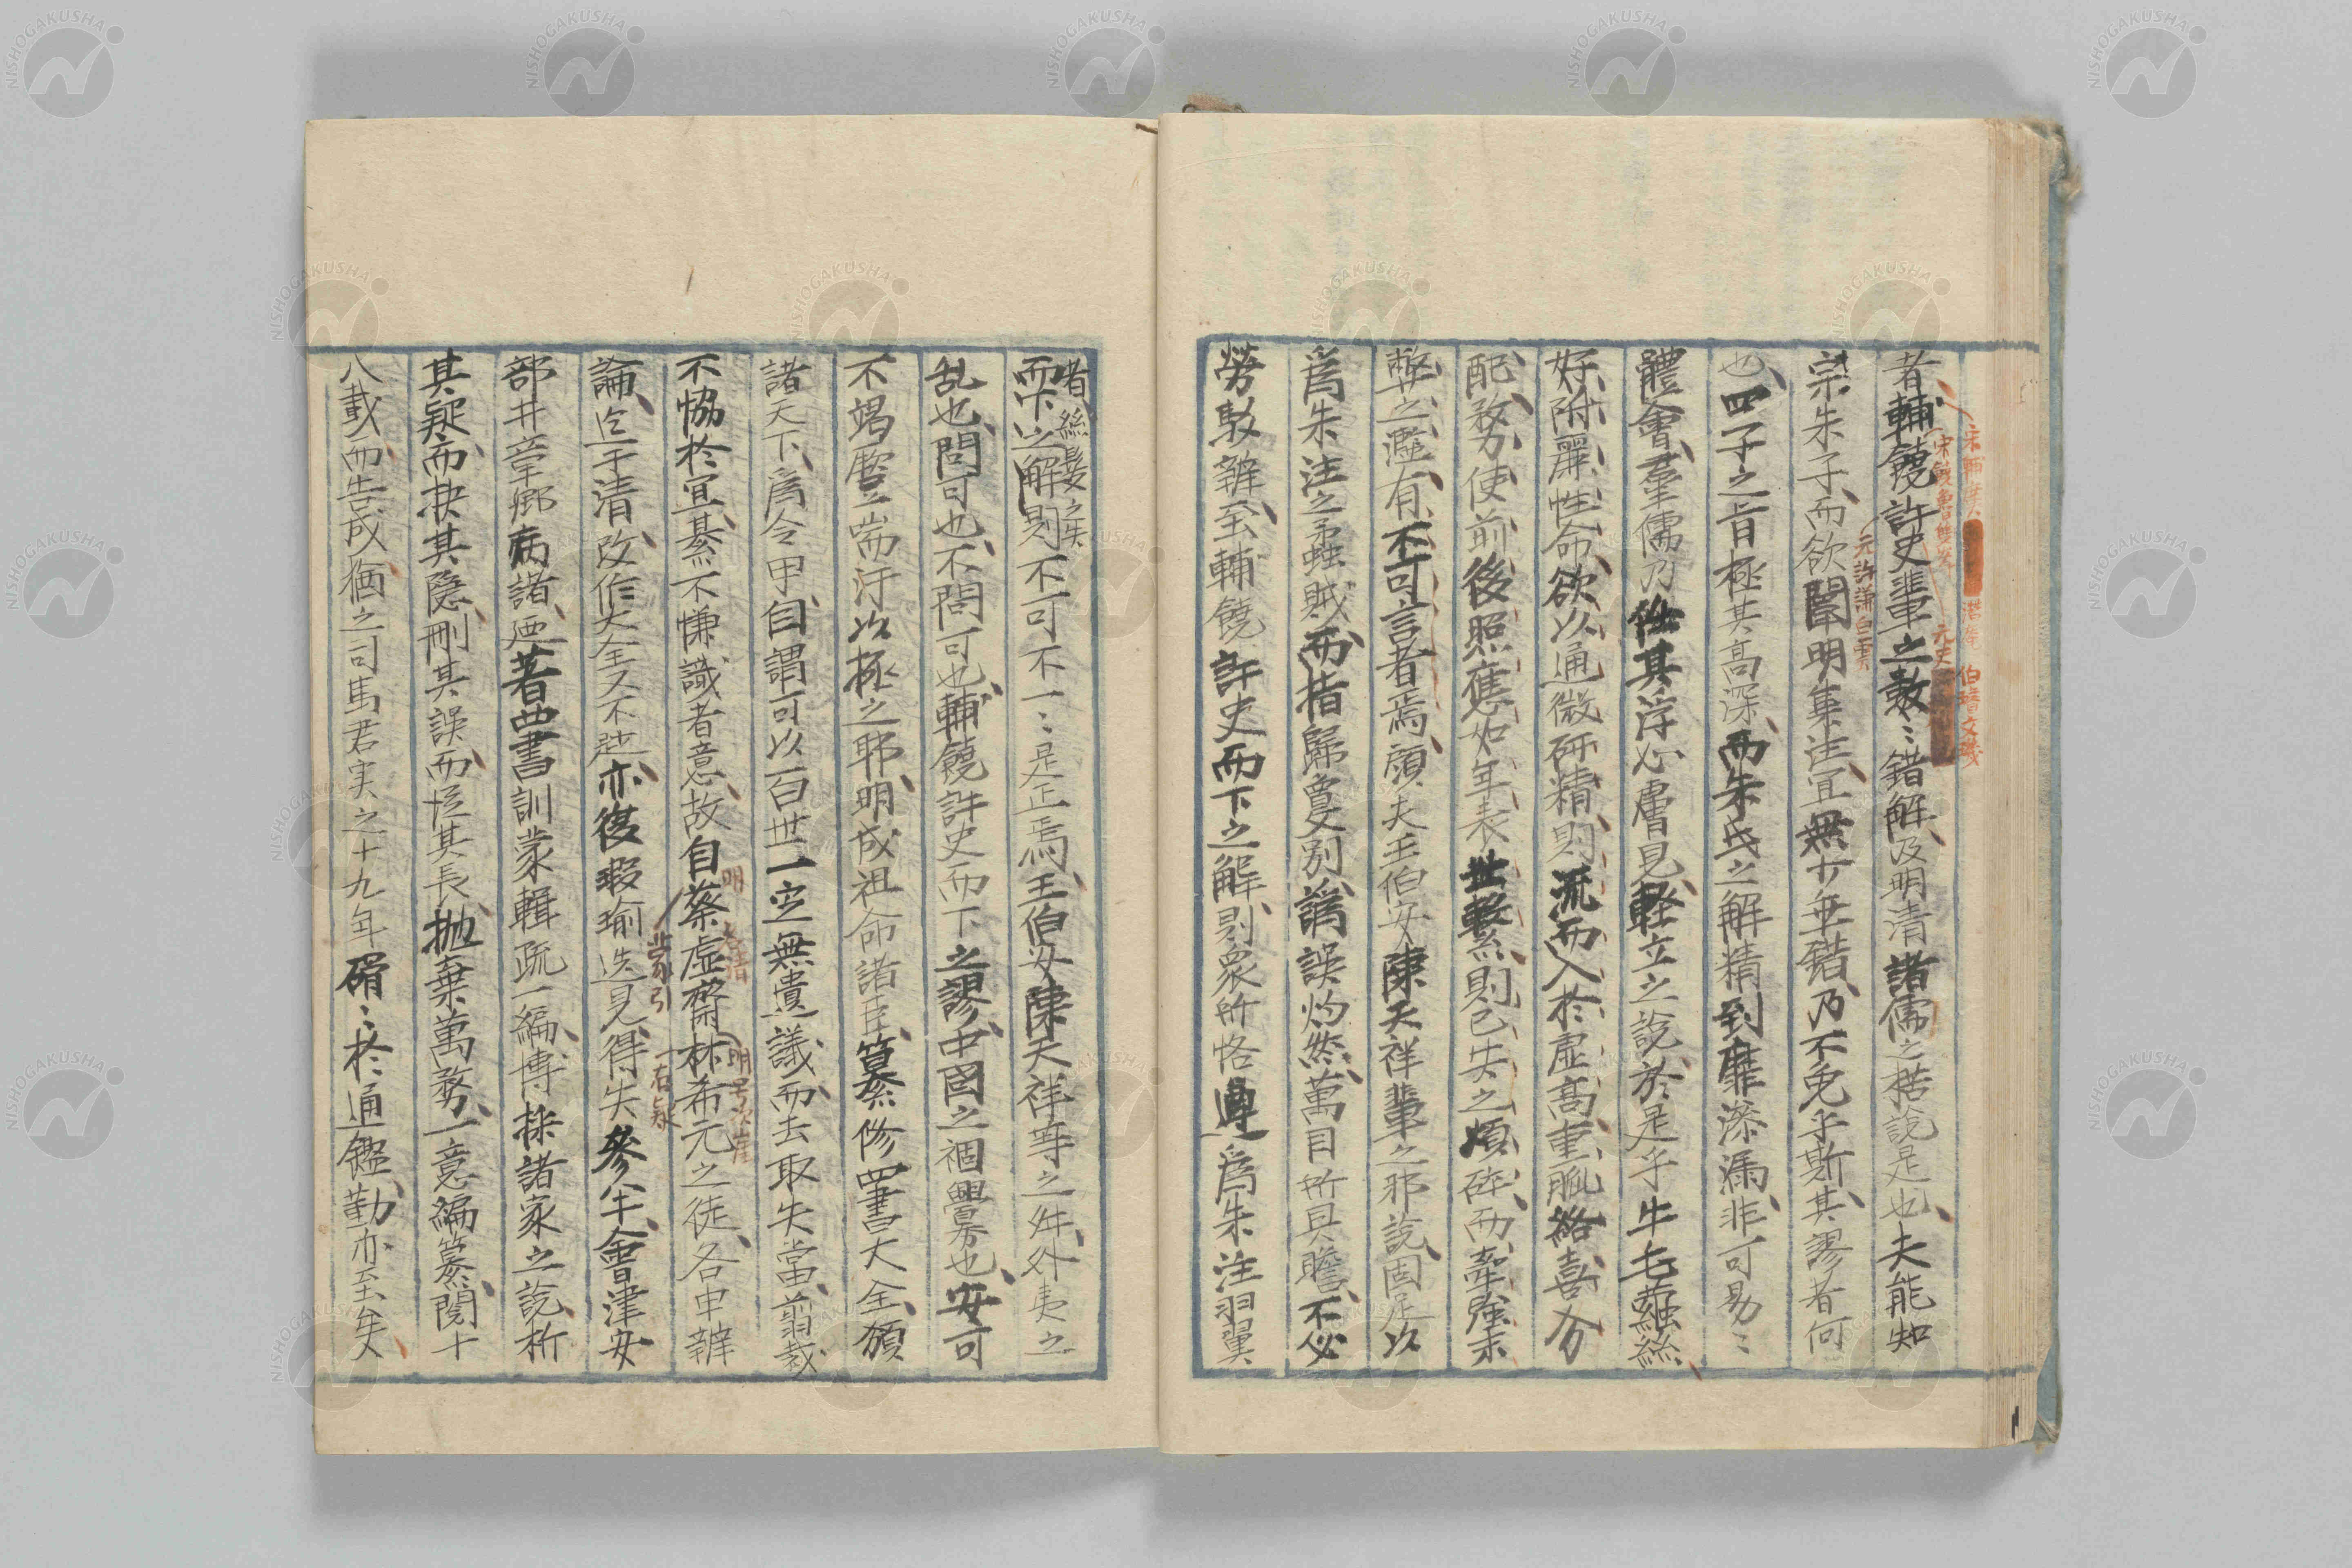 者輔饒許史輩之數〻錯解及明清諸儒之楛說是也夫能知
宗朱子而欲闡明集注宜無少舛錯乃不免乎斯其謬者何
也四子之旨極其高深而朱氏之解精到靡滲漏非可易〻
體會羣儒乃任其浮心膚見輕立之說於是乎牛毛蠒絲
好附麗性命欲以通微研精則流而入於虛高重胍絡喜分
配務使前後照應如年表世繫則已失之煩碎而牽強汞
弊之濫有不可言者焉頋夫王伯安陳天祥輩之邪說固足以
爲朱注之蟊賊而指歸夐別譌誤灼然萬目所具瞻不必
勞駁辨至輔饒許史而下之解則衆所恪遵爲朱注羽翼
者絲髮之失
而下之解則不可不一〻是正焉王伯安陳天祥等之舛外夷之
乱也問可也不問可也輔饒許史而下之謬中國之禍釁也安可
不竭磨立耑汙以極之耶明成祖命諸臣纂修四書大全頒
諸天下爲令甲自謂可以百世一定無遺議而去取失當翦裁
不恊於宜綦不慊識者意故自蔡虛齋林希元之徒各申辨
論迄于清改作大全又不尠亦復瑕瑜迭見得失參半會津安
部井章卿病諸廼著四書訓蒙輯疏一編博採諸家之說析
其疑而抉其隱刪其誤而恡其長抛棄萬務一意編纂閱十
八載而告成猶之司馬君実之十九年矻〻於通鑑勤亦至矣
宋輔廣
宋饒魯雙峯
元許謙白雲
元史伯璿文璣
明
蒙引
明号次崖
存疑
NISHOGAKUSHA